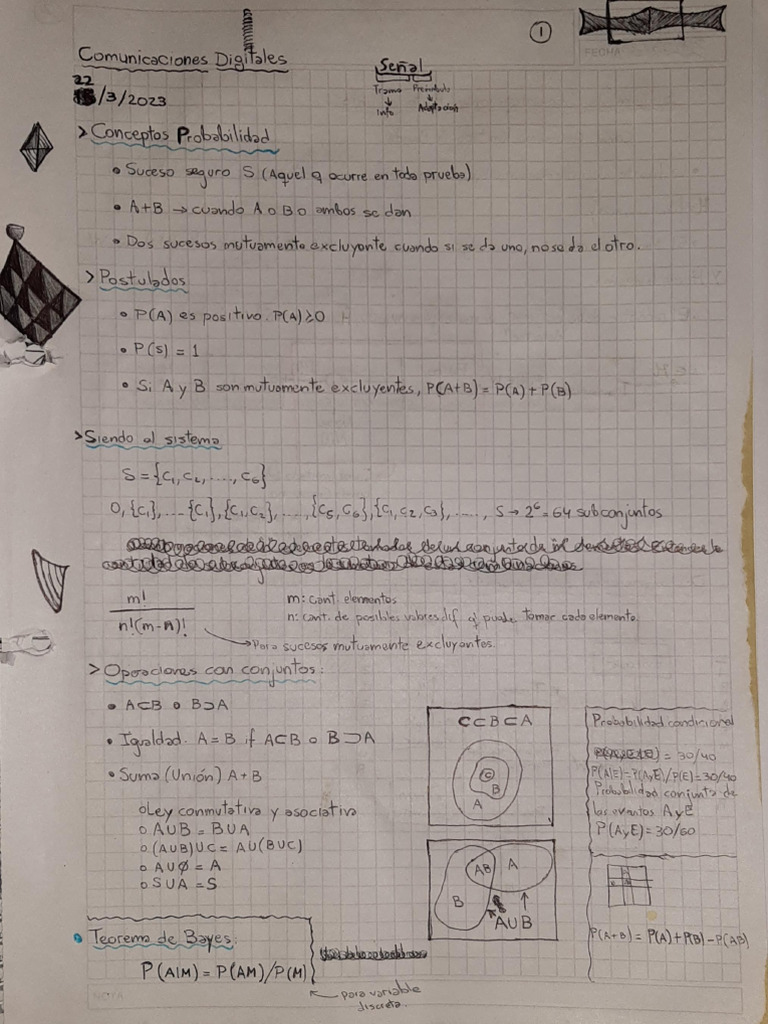 1
Comunicaciones Digitales
Señal
22/3/2023
Trama Preámbulo
Info Adaptación
> Conceptos Probabilidad
• Suceso seguro S (Aquel q ocurre en toda prueba)
• A+B → cuando A o B o ambos se dan
• Dos sucesos mutuamente excluyente cuando si se da uno, no se da el otro.
> Postulados
• P(A) es positiva. P(A)≥0
• P(S) = 1
• Si A y B son mutuamente excluyentes, P(A+B) = P(A) + P(B)
> Siendo el sistema
S = {C₁, C₂, ...., C₆}
0, {C₁}, ... {C₁}, {C₁, C₂}, ..., {C₅, C₆}, {C₁, C₂, C₃}, ...., S → 2⁶ = 64 subconjuntos
m! / n!(m-n)!
m: cant. elementos
n: cant. de posibles valores dif. q' puede tomar cada elemento.
→ Para sucesos mutuamente excluyantes.
> Operaciones con conjuntos:
• A⊂B o B⊃A
• Igualdad. A = B if A⊂B o B⊃A
• Suma (Unión) A + B
o Ley conmutativa y asociativa
o A∪B = B∪A
o (A∪B)∪C = A∪(B∪C)
o A∪Ø = A
o S∪A = S
C⊂B⊂A
C
B
A
AB
A
B
A∪B
Probabilidad condicional
= 30/40
P(A|E)=P(A,E)/P(E)=30/40
Probabilidad conjunta de
los eventos A y E
P(A y E) = 30/60
P(A+B) = P(A) + P(B) - P(AB)
• Teorema de Bayes:
P(A|M) = P(AM)/P(M)
← para variable
discreta.